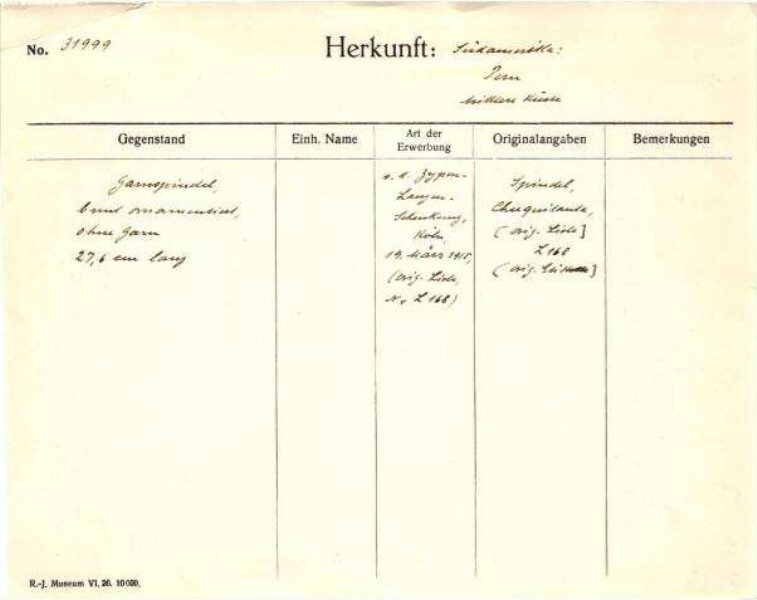 No. 31999
Herkunft: Südamerika:
Peru
Mittlere Küste
Gegenstand
Einh. Name
Art der
Erwerbung
Originalangaben
Bemerkungen
Garnspindel,
bunt ornamentiert,
ohne Garn
27,6 cm lang
v. d. Zypen-
Langen-
Schenkung,
Köln,
19. März 1915,
(orig. Liste,
Nr. L 168)
Spindel,
Chuquitanta,
(orig. Liste]
L 168
(orig.
R.-J. Museum VI. 26. 10000.